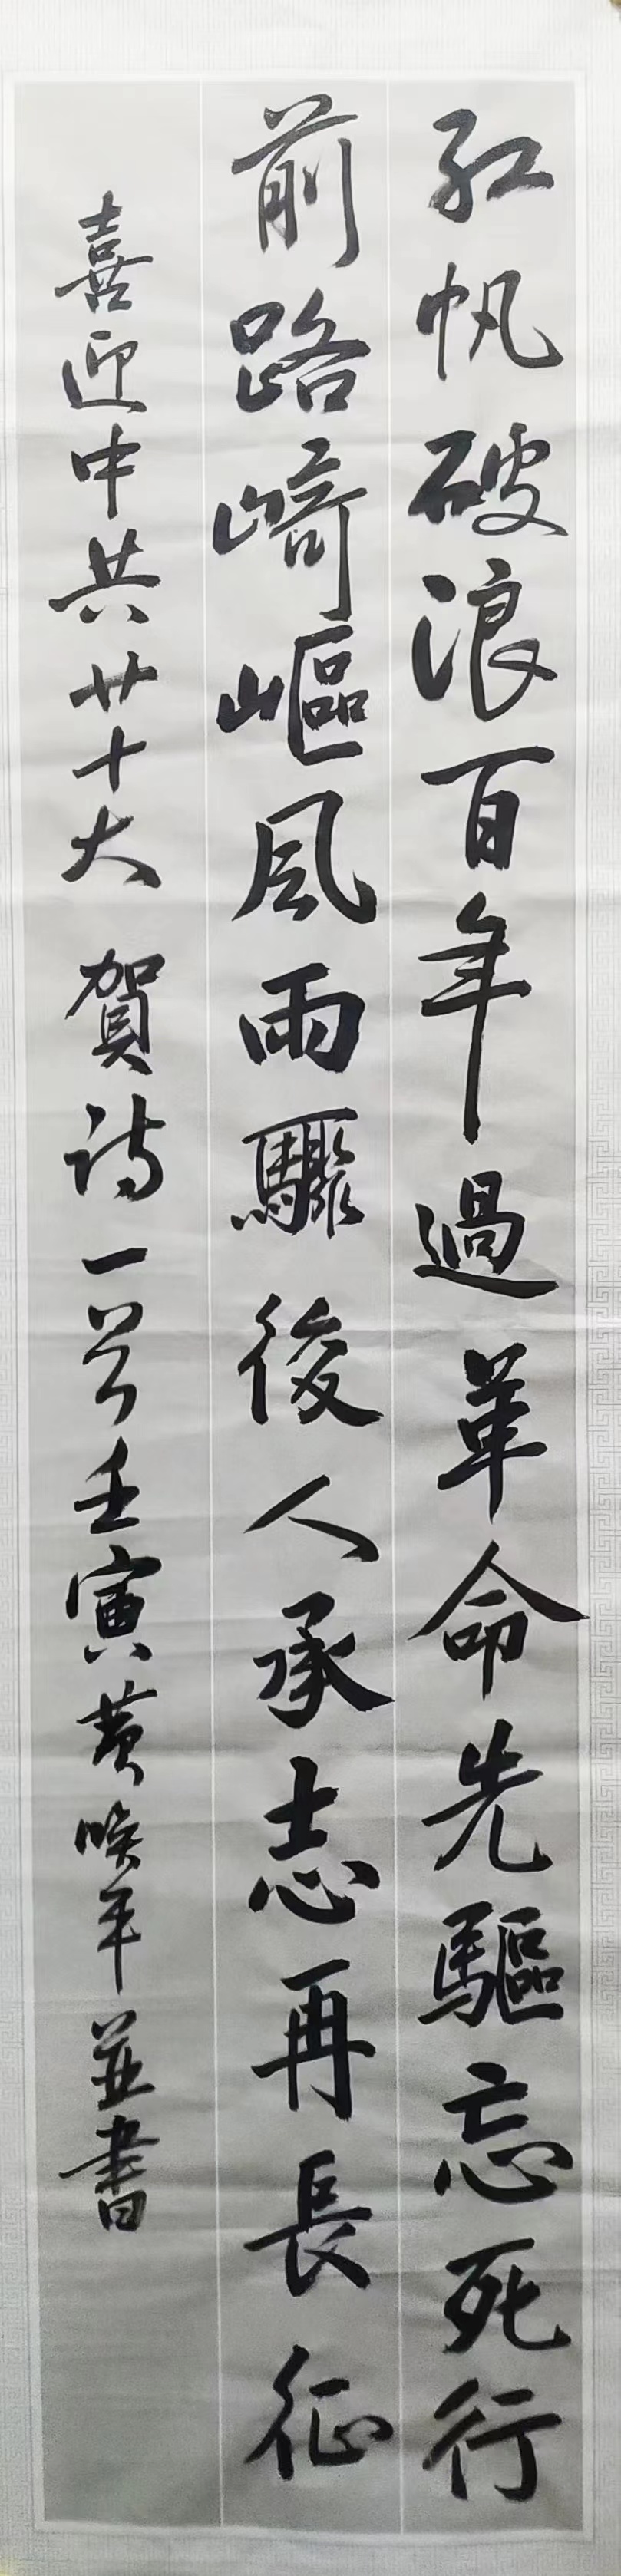 红帆破浪百年過革命先驅忘死行
前路崎嶇風雨驟後人承志再長征
喜迎中共廿十大 賀诗一首壬寅黄㬇年並書